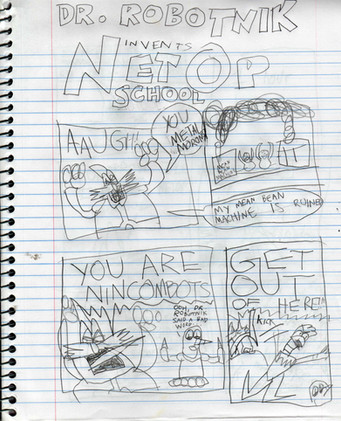 DR. ROBOTNIK
INVENTS
NET OP
SCHOOL
AAUGH!!
YOU
METAL
MORONS
MY MEAN BEAN
MACHINE IS RUINED
YOU ARE
NINCOMBOTS
OOH, DR.
ROBOTNIK
SAID A BAD
WORD
GET
OUT
OF HERE!!
KICK